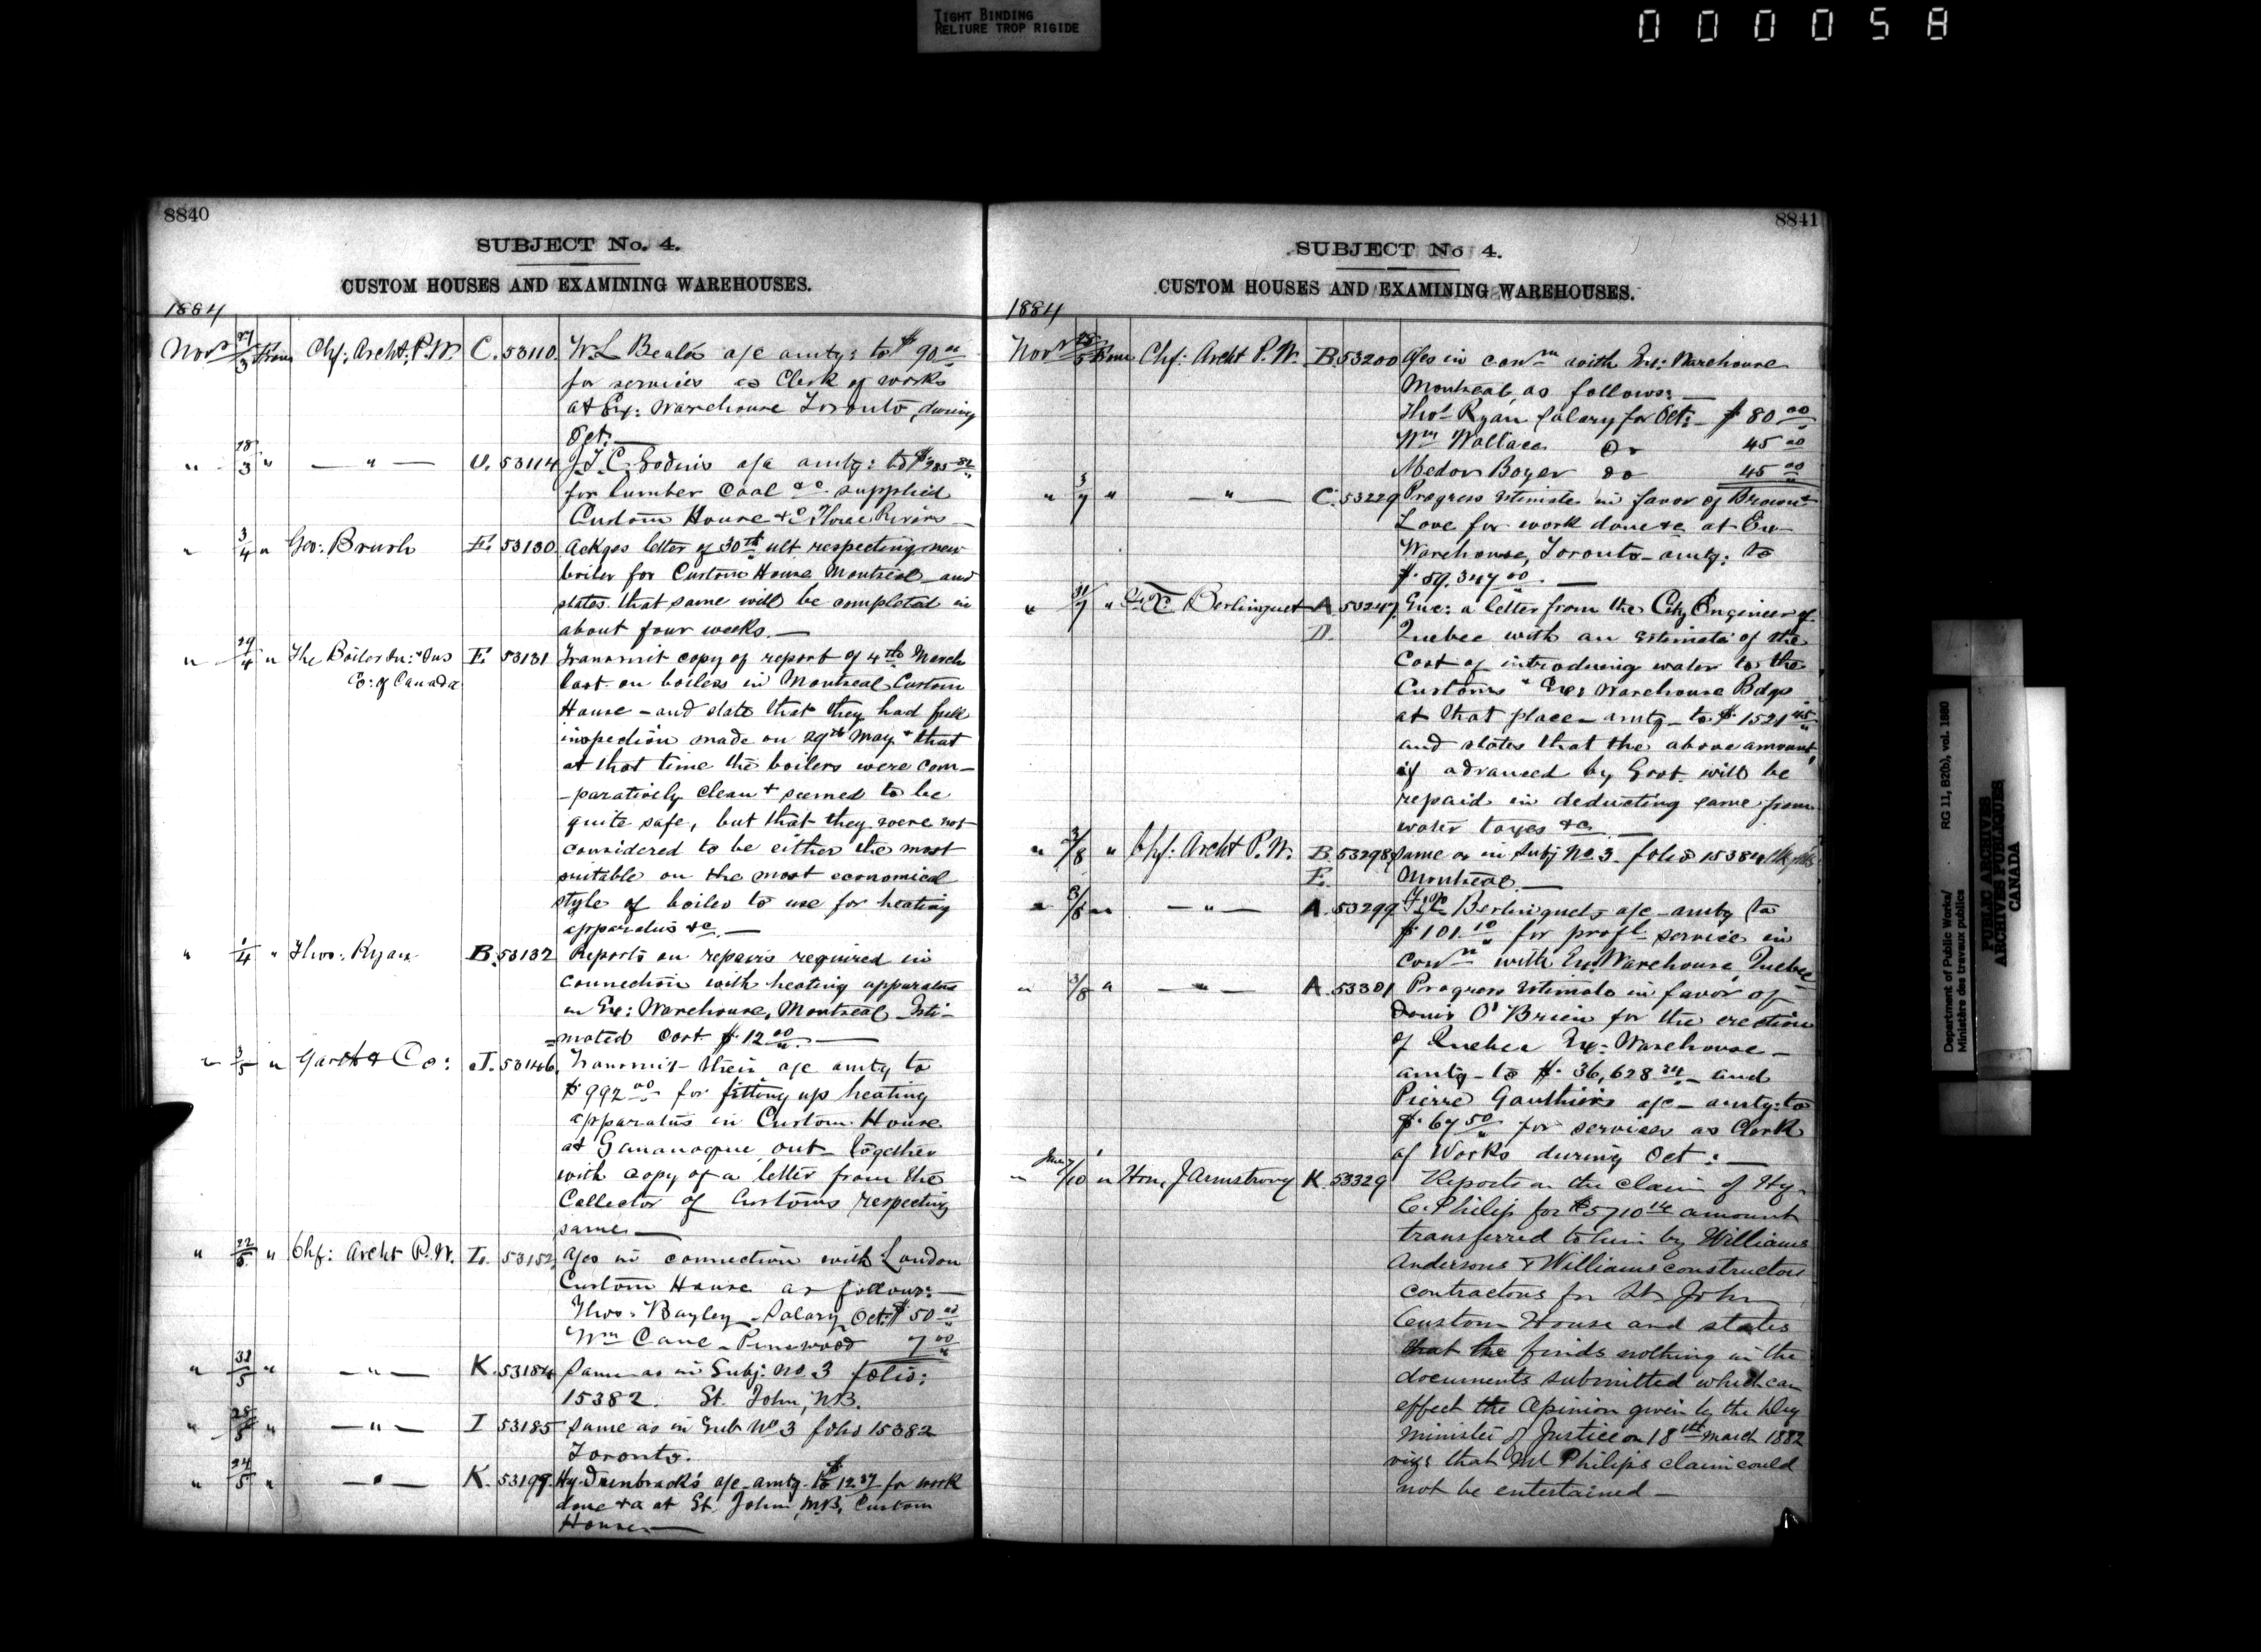 TIGHT BINDING
RELIURE TROP RIGIDE
000058
8840
SUBJECT No. 4.
CUSTOM HOUSES AND EXAMINING WAREHOUSES.
1884
Novr 27/3 From Chf: Archt. P.W. C. 53110. W.L Beal's a/c amtg: to $90.00
for services as Clerk of works
at Ex: Warehouse Toronto, during
Oct:—
" 18/3 " — " — U. 53114 J.T.C. a/c amtg: to
for lumber Coal &c supplied
Custom House &c Three Rivers—
" 3/4 " Geo: Brush E. 53130. Ackges letter of 30th ult respecting new
boiler for Custom House Montreal—and
states that same will be completed in
about four weeks.—
" 29/4 " The Boiler In: & Ins E. 53131 Transmit copy of report of 4th March
Co: of Canada last on boilers in Montreal Custom
House—and state that they had full
inspection made on 29th May & that
at that time the boilers were com-
-paratively clean & seemed to be
quite safe, but that they were not
considered to be either the most
suitable or the most economical
style of boiler to use for heating
apparatus &c.—
" 1/4 " Thos: Ryan B. 53132 Reports on repairs required in
connection with heating apparatus
in Ex: Warehouse, Montreal—Esti-
=mated cost $12.00.—
" 3/5 " Garth & Co: J. 53146. Transmit their a/c amtg to
$992.00 for fitting up heating
apparatus in Custom House
at Gananoque, Ont—together
with copy of a letter from the
Collector of Customs respecting
same—
" 22/5 " Chf: Archt P.W. L. 53152, a/cs in connection with London
Custom House as follows:—
Thos: Bayley—Salary Oct: $50.00
Wm Cane—Pinewood 7.00
" 31/5 " — " — K. 53184 Same as in Subj: No. 3 folio:
15382. St. John, N.B.
" 28/5 " — " — I 53185 Same as in Sub No 3 folio 15382
Toronto.
" 24/5 " — " — K. 53199. Hy. Dunbrack's a/c amtg. to $12.37 for work
done &c at St. John, N.B, Custom
House—
8841
SUBJECT No 4.
CUSTOM HOUSES AND EXAMINING WAREHOUSES.
1884
Novr 25/5 From Chf: Archt P.W. B. 53200 a/cs in conn with Ex: Warehouse
Montreal, as follows:—
Thos Ryan Salary for Oct:— $80.00
Wm Wallace Do 45.00
Medor Boyer do 45.00
" 3/7 " — " — C. 53229 Progress Estimate in favor of Brown &
Love for work done &c at Ex
Warehouse, Toronto—amtg: to
$59.347.00.—
" 31/7 " Berlinguet A 53247. Enc: a letter from the City Engineer of
D. Quebec with an estimate of the
cost of introducing water to the
Customs & Ex: Warehouse Bdgs
at that place—amtg—to $1521.45
and states that the above amount,
if advanced by Govt. will be
repaid in deducting same from
water taxes &c.—
" 3/8 " Chf: Archt P.W. B. 53298 Same as in Subj No. 3. folio 15384
E. Montreal.—
" 3/8 " — " — A. 53299 Berlinguet's a/c—amtg to
$101.10 for profl service in
conn with Ex. Warehouse, Quebec
" 3/8 " — " — A. 53301 Progress Estimate in favor of
Denis O'Brien for the erection
of Quebec Ex: Warehouse—
amtg—to $36,628.34—and
Pierre Gauthier's a/c—amtg: to
$67.50 for services as Clerk
of Works during Oct:—
" June 7/10 " Hon, J Armstrong K. 53329 Reports on the claim of Hy
C. Philip for $5710.14 amount
transferred to him by Williams
Andersons & Williams constructors
contractors for St. John
Custom House and states
that he finds nothing in the
documents submitted which can
effect the opinion given by the Dep
Minister of Justice on 18th March 1882
viz: that Mr Philips claim could
not be entertained—
Department of Public Works/
Ministère des travaux publics
RG 11, B2(b), vol. 1880
PUBLIC ARCHIVES
ARCHIVES PUBLIQUES
CANADA